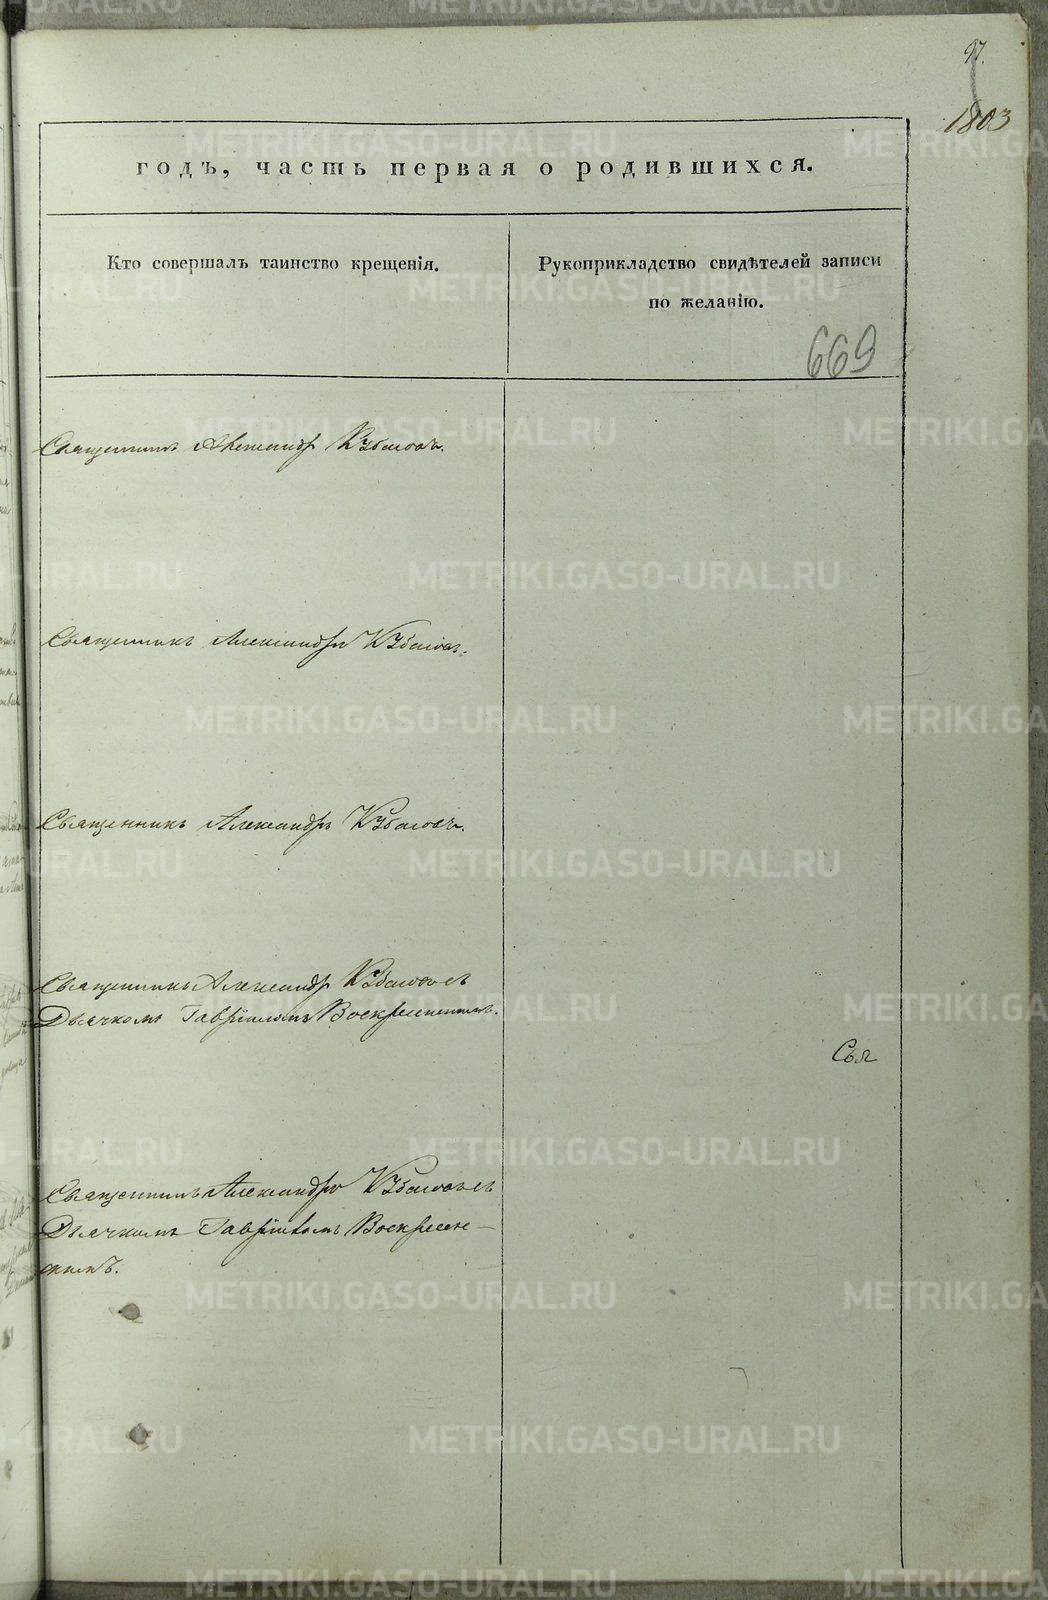 97.
1803
годъ, часть первая о родившихся.
Кто совершалъ таинство крещенія.
Рукоприкладство свидѣтелей записи
по желанію.
669
Священникъ Александръ Кубасовъ.
Священникъ Александръ Кубасовъ.
Священникъ Александръ Кубасовъ.
Священникъ Александръ Кубасовъ съ
Дьячкомъ Гавріиломъ Воскресенскимъ.
Свя
Священникъ Александръ Кубасовъ съ
Дьячкомъ Гавріиломъ Воскресен-
скимъ.
METRIKI.GASO-URAL.RU